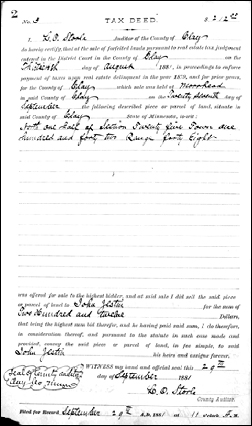 2
No. 3 TAX DEED. $ 212.00
I, L. O. Stoole Auditor of the County of Clay
do hereby certify, that at the sale of forfeited lands pursuant to real estate tax judgment
entered in the District Court in the County of Clay on the
Thirteenth day of August 1881, in proceedings to enforce
payment of taxes upon real estate delinquent in the year 1879, and prior years,
for the County of Clay which sale was held at Moorhead
in said County of Clay on the Twenty seventh day of
September the following described piece or parcel of land, situate in
said County of Clay State of Minnesota, to-wit:
North one half of Section Twenty five Town one
hundred and forty two Range forty Eight
was offered for sale to the highest bidder, and at said sale I did sell the said piece
or parcel of land to John for the sum of
Two Hundred and twelve Dollars,
that being the highest sum bid therefor, and he having paid said sum, I do therefore,
in consideration thereof, and pursuant to the statute in such case made and
provided, convey the said piece or parcel of land, in fee simple, to said
John his heirs and assigns forever.
WITNESS my hand and official seal this 29th
day of September 1881
Seal of County Auditor
Clay Co Minn
L. O. Stoole
County Auditor
Filed for Record September 29th A.D. 1881 at 11 o'clock A.M.